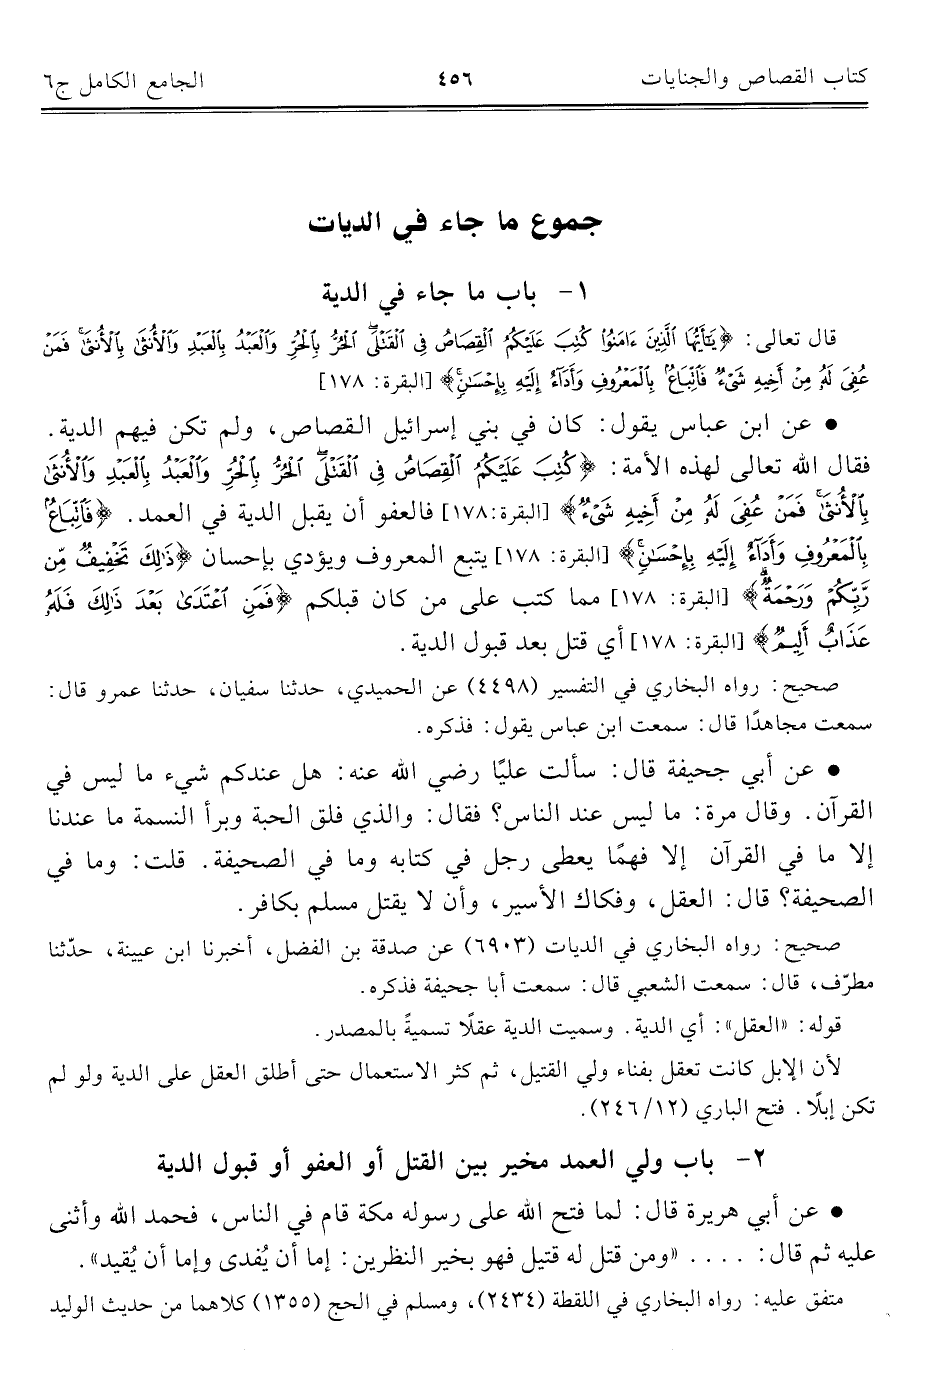 كتاب القصاص والجنايات ٤٥٦ الجامع الكامل ج٦
جموع ما جاء في الديات
١- باب ما جاء في الدية
قال تعالى: ﴿يَـٰٓأَيُّهَا ٱلَّذِينَ ءَامَنُوا۟ كُتِبَ عَلَيْكُمُ ٱلْقِصَاصُ فِى ٱلْقَتْلَىۖ ٱلْحُرُّ بِٱلْحُرِّ وَٱلْعَبْدُ بِٱلْعَبْدِ وَٱلْأُنثَىٰ بِٱلْأُنثَىٰۚ فَمَنْ
عُفِىَ لَهُۥ مِنْ أَخِيهِ شَىْءٌ فَٱتِّبَاعٌۢ بِٱلْمَعْرُوفِ وَأَدَآءٌ إِلَيْهِ بِإِحْسَـٰنٍۚ﴾ [البقرة: ١٧٨]
● عن ابن عباس يقول: كان في بني إسرائيل القصاص، ولم تكن فيهم الدية.
فقال الله تعالى لهذه الأمة: ﴿كُتِبَ عَلَيْكُمُ ٱلْقِصَاصُ فِى ٱلْقَتْلَىۖ ٱلْحُرُّ بِٱلْحُرِّ وَٱلْعَبْدُ بِٱلْعَبْدِ وَٱلْأُنثَىٰ
بِٱلْأُنثَىٰۚ فَمَنْ عُفِىَ لَهُۥ مِنْ أَخِيهِ شَىْءٌ﴾ [البقرة:١٧٨] فالعفو أن يقبل الدية في العمد. ﴿فَٱتِّبَاعٌۢ
بِٱلْمَعْرُوفِ وَأَدَآءٌ إِلَيْهِ بِإِحْسَـٰنٍۚ﴾ [البقرة: ١٧٨] يتبع المعروف ويؤدي بإحسان ﴿ذَٰلِكَ تَخْفِيفٌ مِّن
رَّبِّكُمْ وَرَحْمَةٌۗ﴾ [البقرة: ١٧٨] مما كتب على من كان قبلكم ﴿فَمَنِ ٱعْتَدَىٰ بَعْدَ ذَٰلِكَ فَلَهُۥ
عَذَابٌ أَلِيمٌ﴾ [البقرة: ١٧٨] أي قتل بعد قبول الدية.
صحيح: رواه البخاري في التفسير (٤٤٩٨) عن الحميدي، حدثنا سفيان، حدثنا عمرو قال:
سمعت مجاهدًا قال: سمعت ابن عباس يقول: فذكره.
● عن أبي جحيفة قال: سألت عليًا رضي الله عنه: هل عندكم شيء ما ليس في
القرآن. وقال مرة: ما ليس عند الناس؟ فقال: والذي فلق الحبة وبرأ النسمة ما عندنا
إلا ما في القرآن إلا فهمًا يعطى رجل في كتابه وما في الصحيفة. قلت: وما في
الصحيفة؟ قال: العقل، وفكاك الأسير، وأن لا يقتل مسلم بكافر.
صحيح: رواه البخاري في الديات (٦٩٠٣) عن صدقة بن الفضل، أخبرنا ابن عيينة، حدّثنا
مطرّف، قال: سمعت الشعبي قال: سمعت أبا جحيفة فذكره.
قوله: «العقل»: أي الدية. وسميت الدية عقلًا تسميةً بالمصدر.
لأن الإبل كانت تعقل بفناء ولي القتيل، ثم كثر الاستعمال حتى أطلق العقل على الدية ولو لم
تكن إبلًا. فتح الباري (١٢/ ٢٤٦).
٢- باب ولي العمد مخير بين القتل أو العفو أو قبول الدية
● عن أبي هريرة قال: لما فتح الله على رسوله مكة قام في الناس، فحمد الله وأثنى
عليه ثم قال: .... «ومن قتل له قتيل فهو بخير النظرين: إما أن يُفدى وإما أن يُقيد».
متفق عليه: رواه البخاري في اللقطة (٢٤٣٤)، ومسلم في الحج (١٣٥٥) كلاهما من حديث الوليد